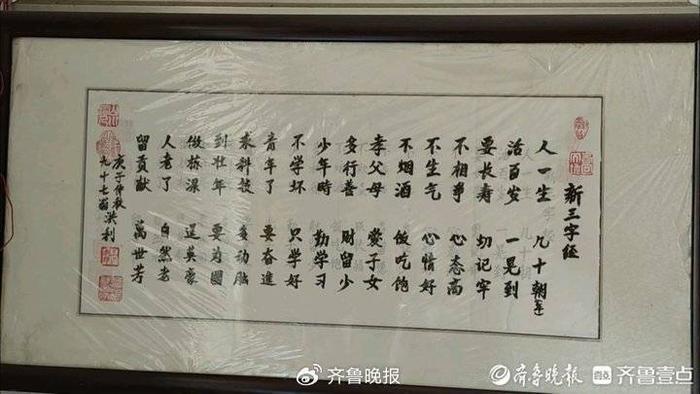 新三字经
人一生 几十朝
活百岁 一晃到
要长寿 切记牢
不相争 心态高
不生气 心情好
不烟酒 吃饱
孝父母 爱子女
多行善 财留少
少年時 勤学习
不学坏 只学好
青年了 要奋進
求科技 多动脑
到壮年 要为國
做栋梁 逞英豪
人老了 自然老
留贡献 萬世芳
庚子仲秋
九十七翁 洪利
齐鲁晚报
齐鲁晚报 齐鲁壹点